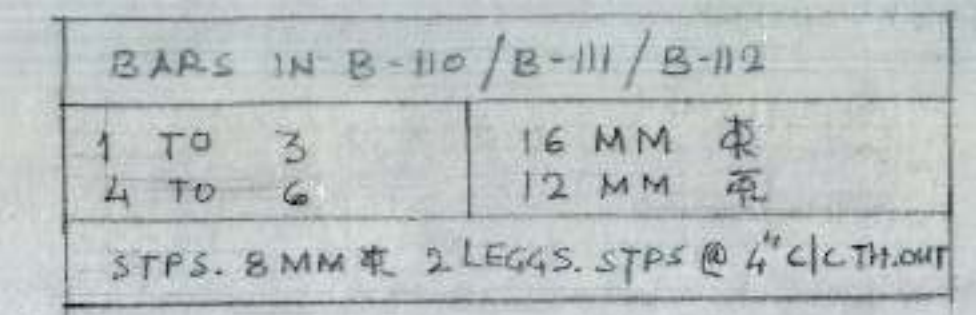 BARS IN B-110 / B-111 / B-112
1 TO 3 16 MM
4 TO 6 12 MM
STPS. 8 MM 2 LEGGS. STPS @ 4" C/C TH.OUT